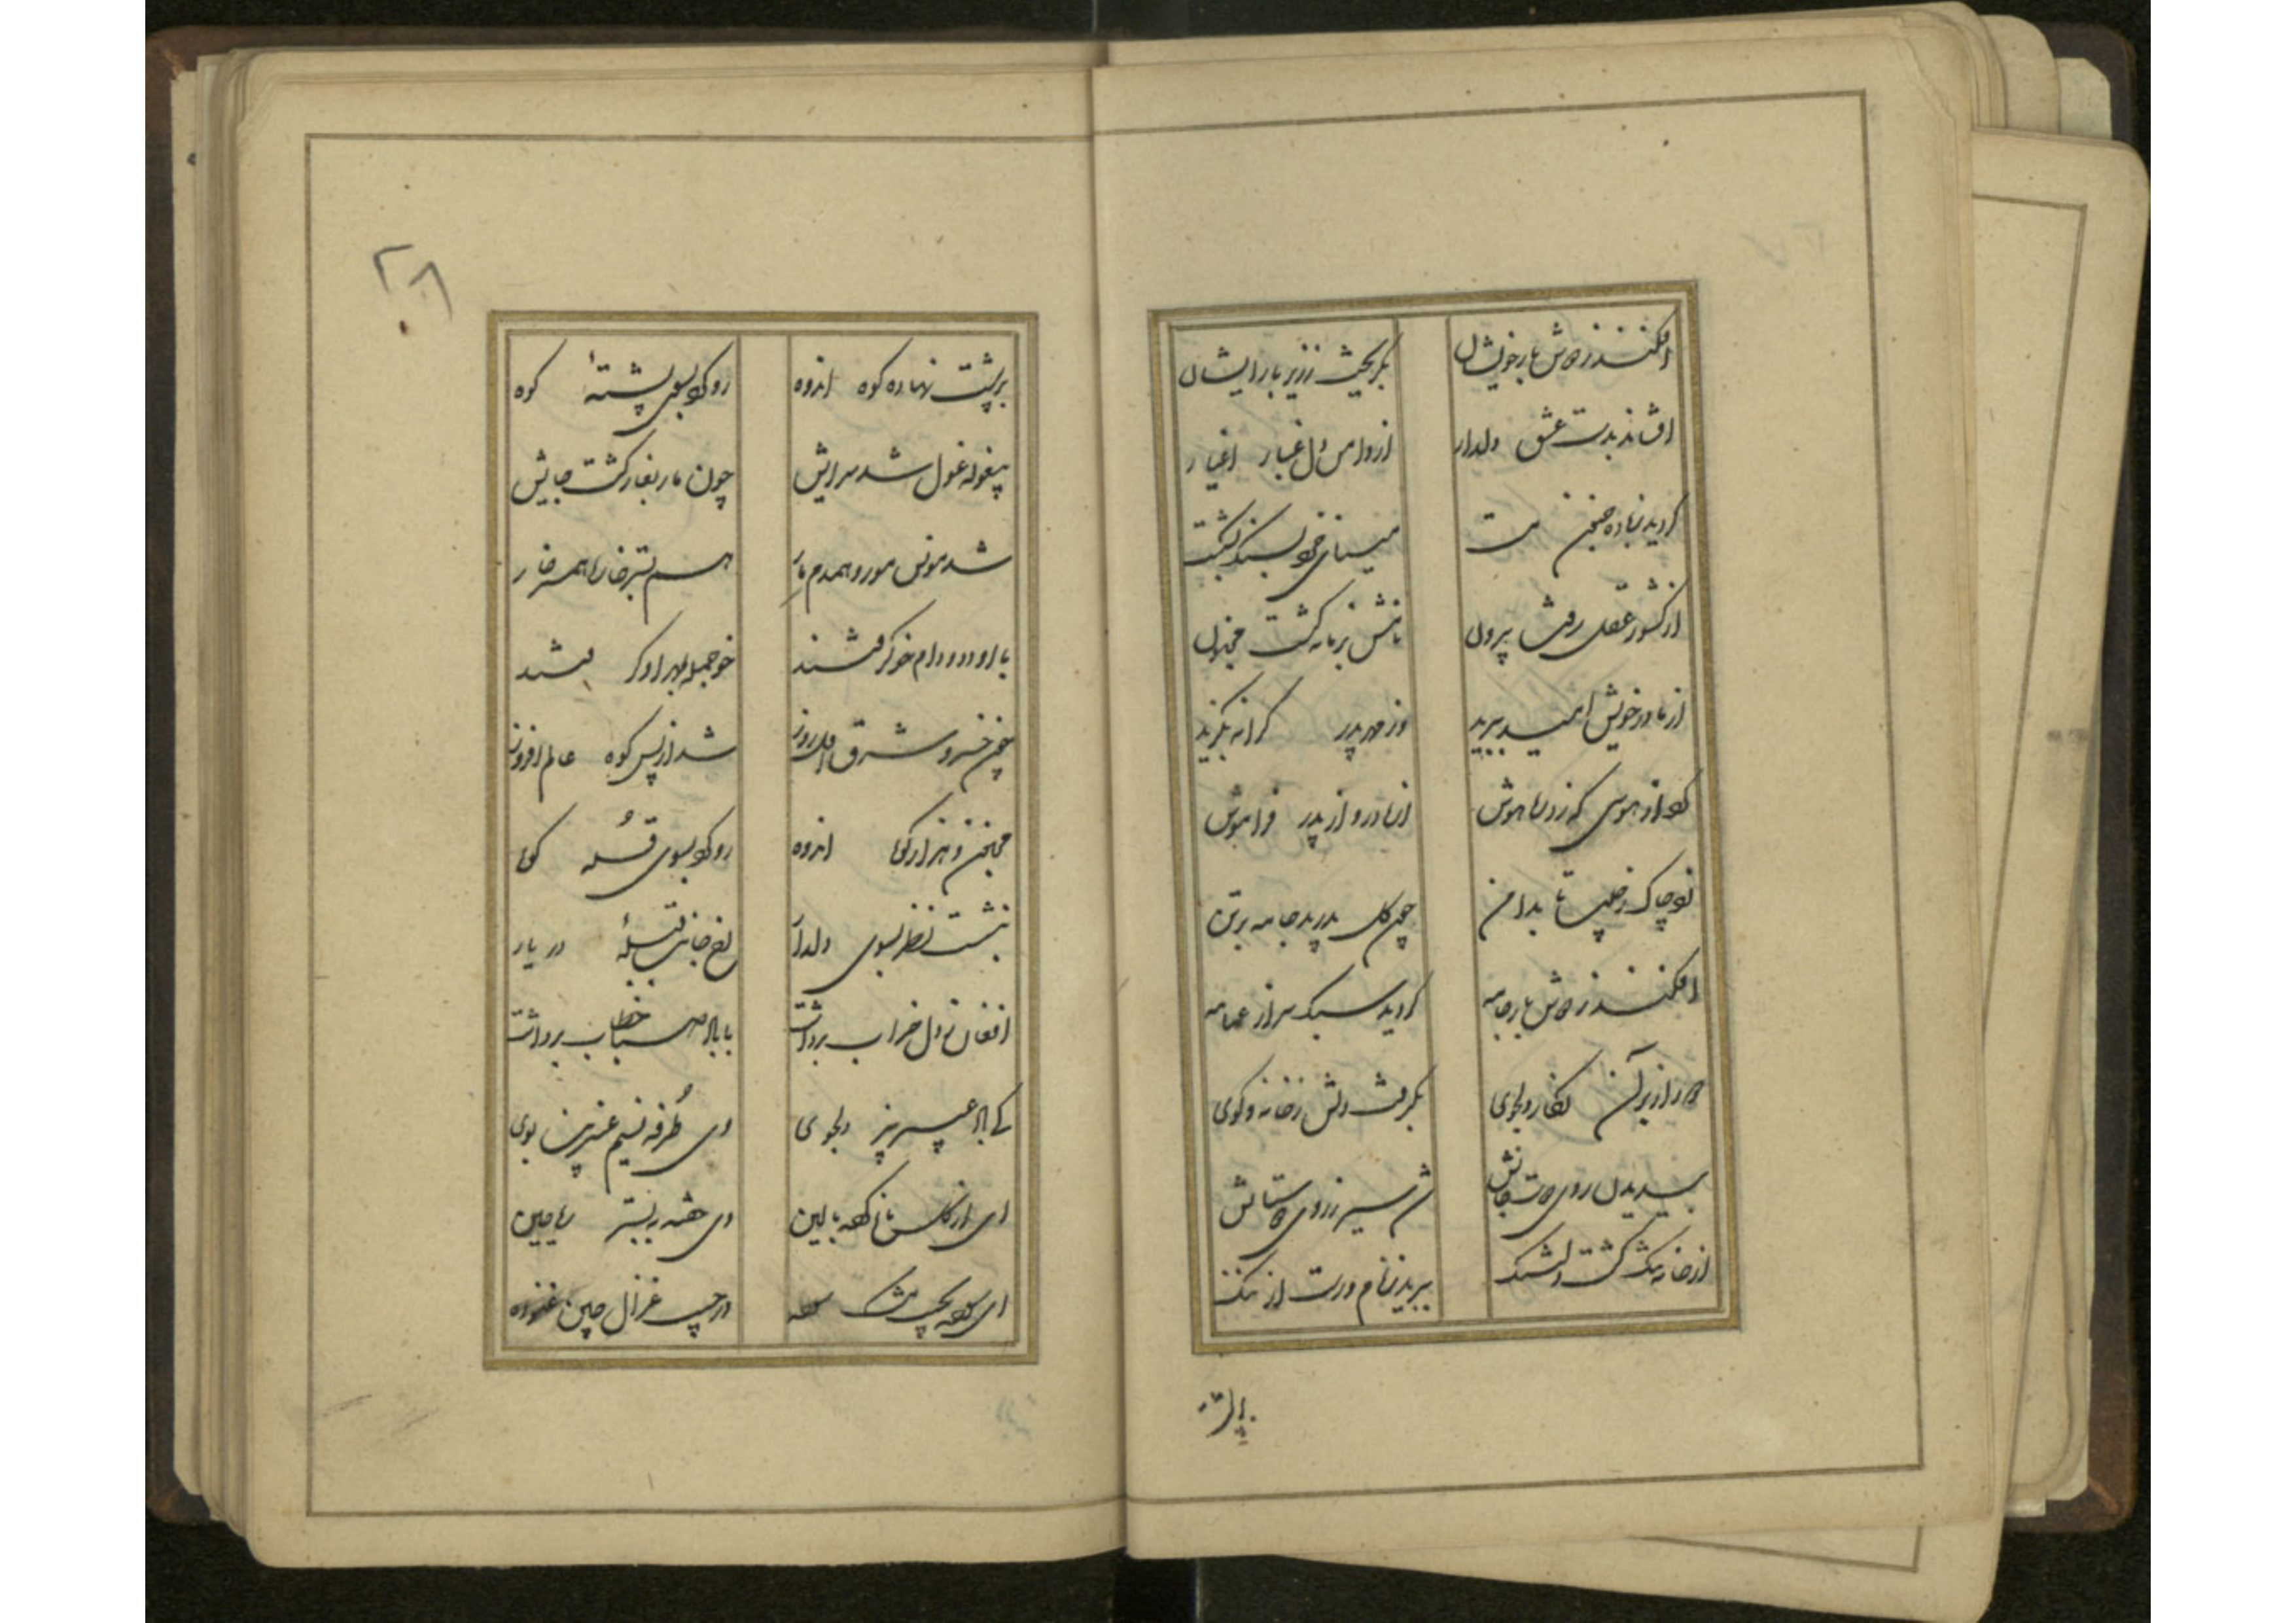 افکند ز دوش بار خویشان بگریخت ز زیر بار ایشان
افشاند بدست عشق دلدار از دامن دل غبار اغیار
گردید ز باده جنون مست مینای خرد بسنگ بشکست
از کشور عقل رفت بیرون نامش بزمانه گشت مجنون
از مادر خویش امید ببرید وز مهر پدر کرانه بگزید
کرد از هوسی که زد رهٔ هوش از مادر و از پدر فراموش
زد چاک ز جیب تا بدامن چون گل بدرید جامه بر تن
افکند ز دوش بار جامه گردید سبک سر از عمامه
دور از بر آن نگار دلجوی بگرفت دلش ز خانه و کوی
بی دیدن روی دوست جانش شد سیر ز روی دوستانش
از خانه تنگ گشت دلتنگ ببرید ز نام و رست از ننگ
بر پشت
بر پشت نهاده کوه اندوه رو کرد بسوی پشتهٔ کوه
بیغوله غول شد سرایش چون مار بغار گشت جایش
شد مونس مور و همدم مار هم بستر خار و همسر خار
با او دد و دام خو گرفتند خو جمله بمهر او گرفتند
چون خسرو شرق اول روز شد از پس کوه عالم افروز
مجنون ز هزار کوه اندوه رو کرد بسوی قلهٔ کوه
بنشست نظر بسوی دلدار رخ جانب قبیلهٔ در یار
افغان ز دل خراب برداشت با باد صبا خطاب برداشت
کای باد عبیر بیز دلجوی وی طرفه نسیم عنبرین بوی
ای از گل ناز کرده بالین وی خفته به بستر ریاحین
ای کرده بجیب مشک سوده در جیب غزال چین غنوده
۲۰۸